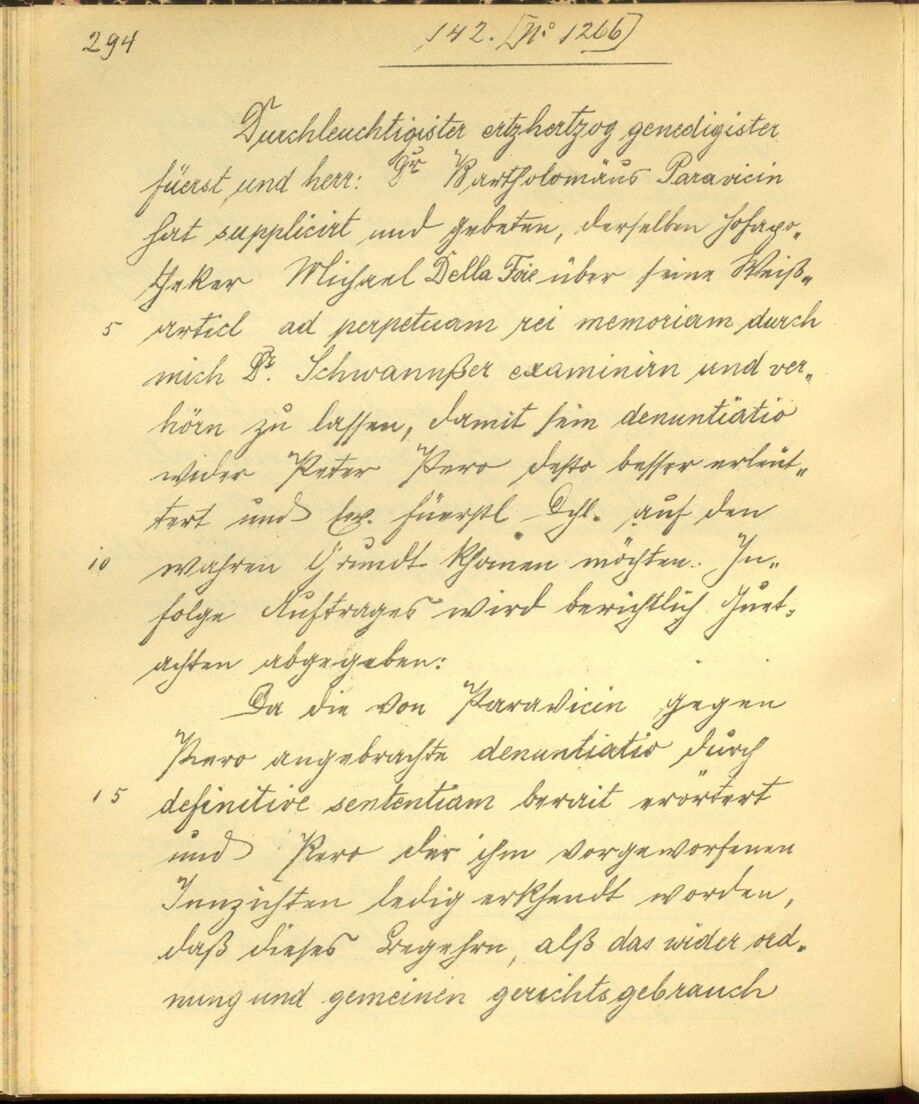 294
142. [No 1266]
Durchleuchtigister ertzhertzog genedigister
füerst und herr: Dr Bartholomäus Paravicin
hat supplicirt und gebeten, derselben hofapo„
theker Michael Della Foie über seine Weiß„
5 articl ad perpetuam rei memoriam durch
mich Dr. Schwannßer examinirn und ver„
hörn zu lassen, damit sein denuntiatio
wider Peter Pero desto besser erleüt„
tert und Ew. füerstl Dchl. auf den
10 wahren Grundt khomen möchten. In„
folge Auftrages wird berichtlich Guet„
achten abgegeben:
Da die von Paravicin gegen
Pero angebrachte denuntiatio durch
15 definitive sententiam berait erörtert
und Pero der ihm vorgeworfenen
Innzichten ledig erkhendt worden,
daß dieses Begehrn, alß das wider ord„
nung und gemeinen gerichtsgebrauch